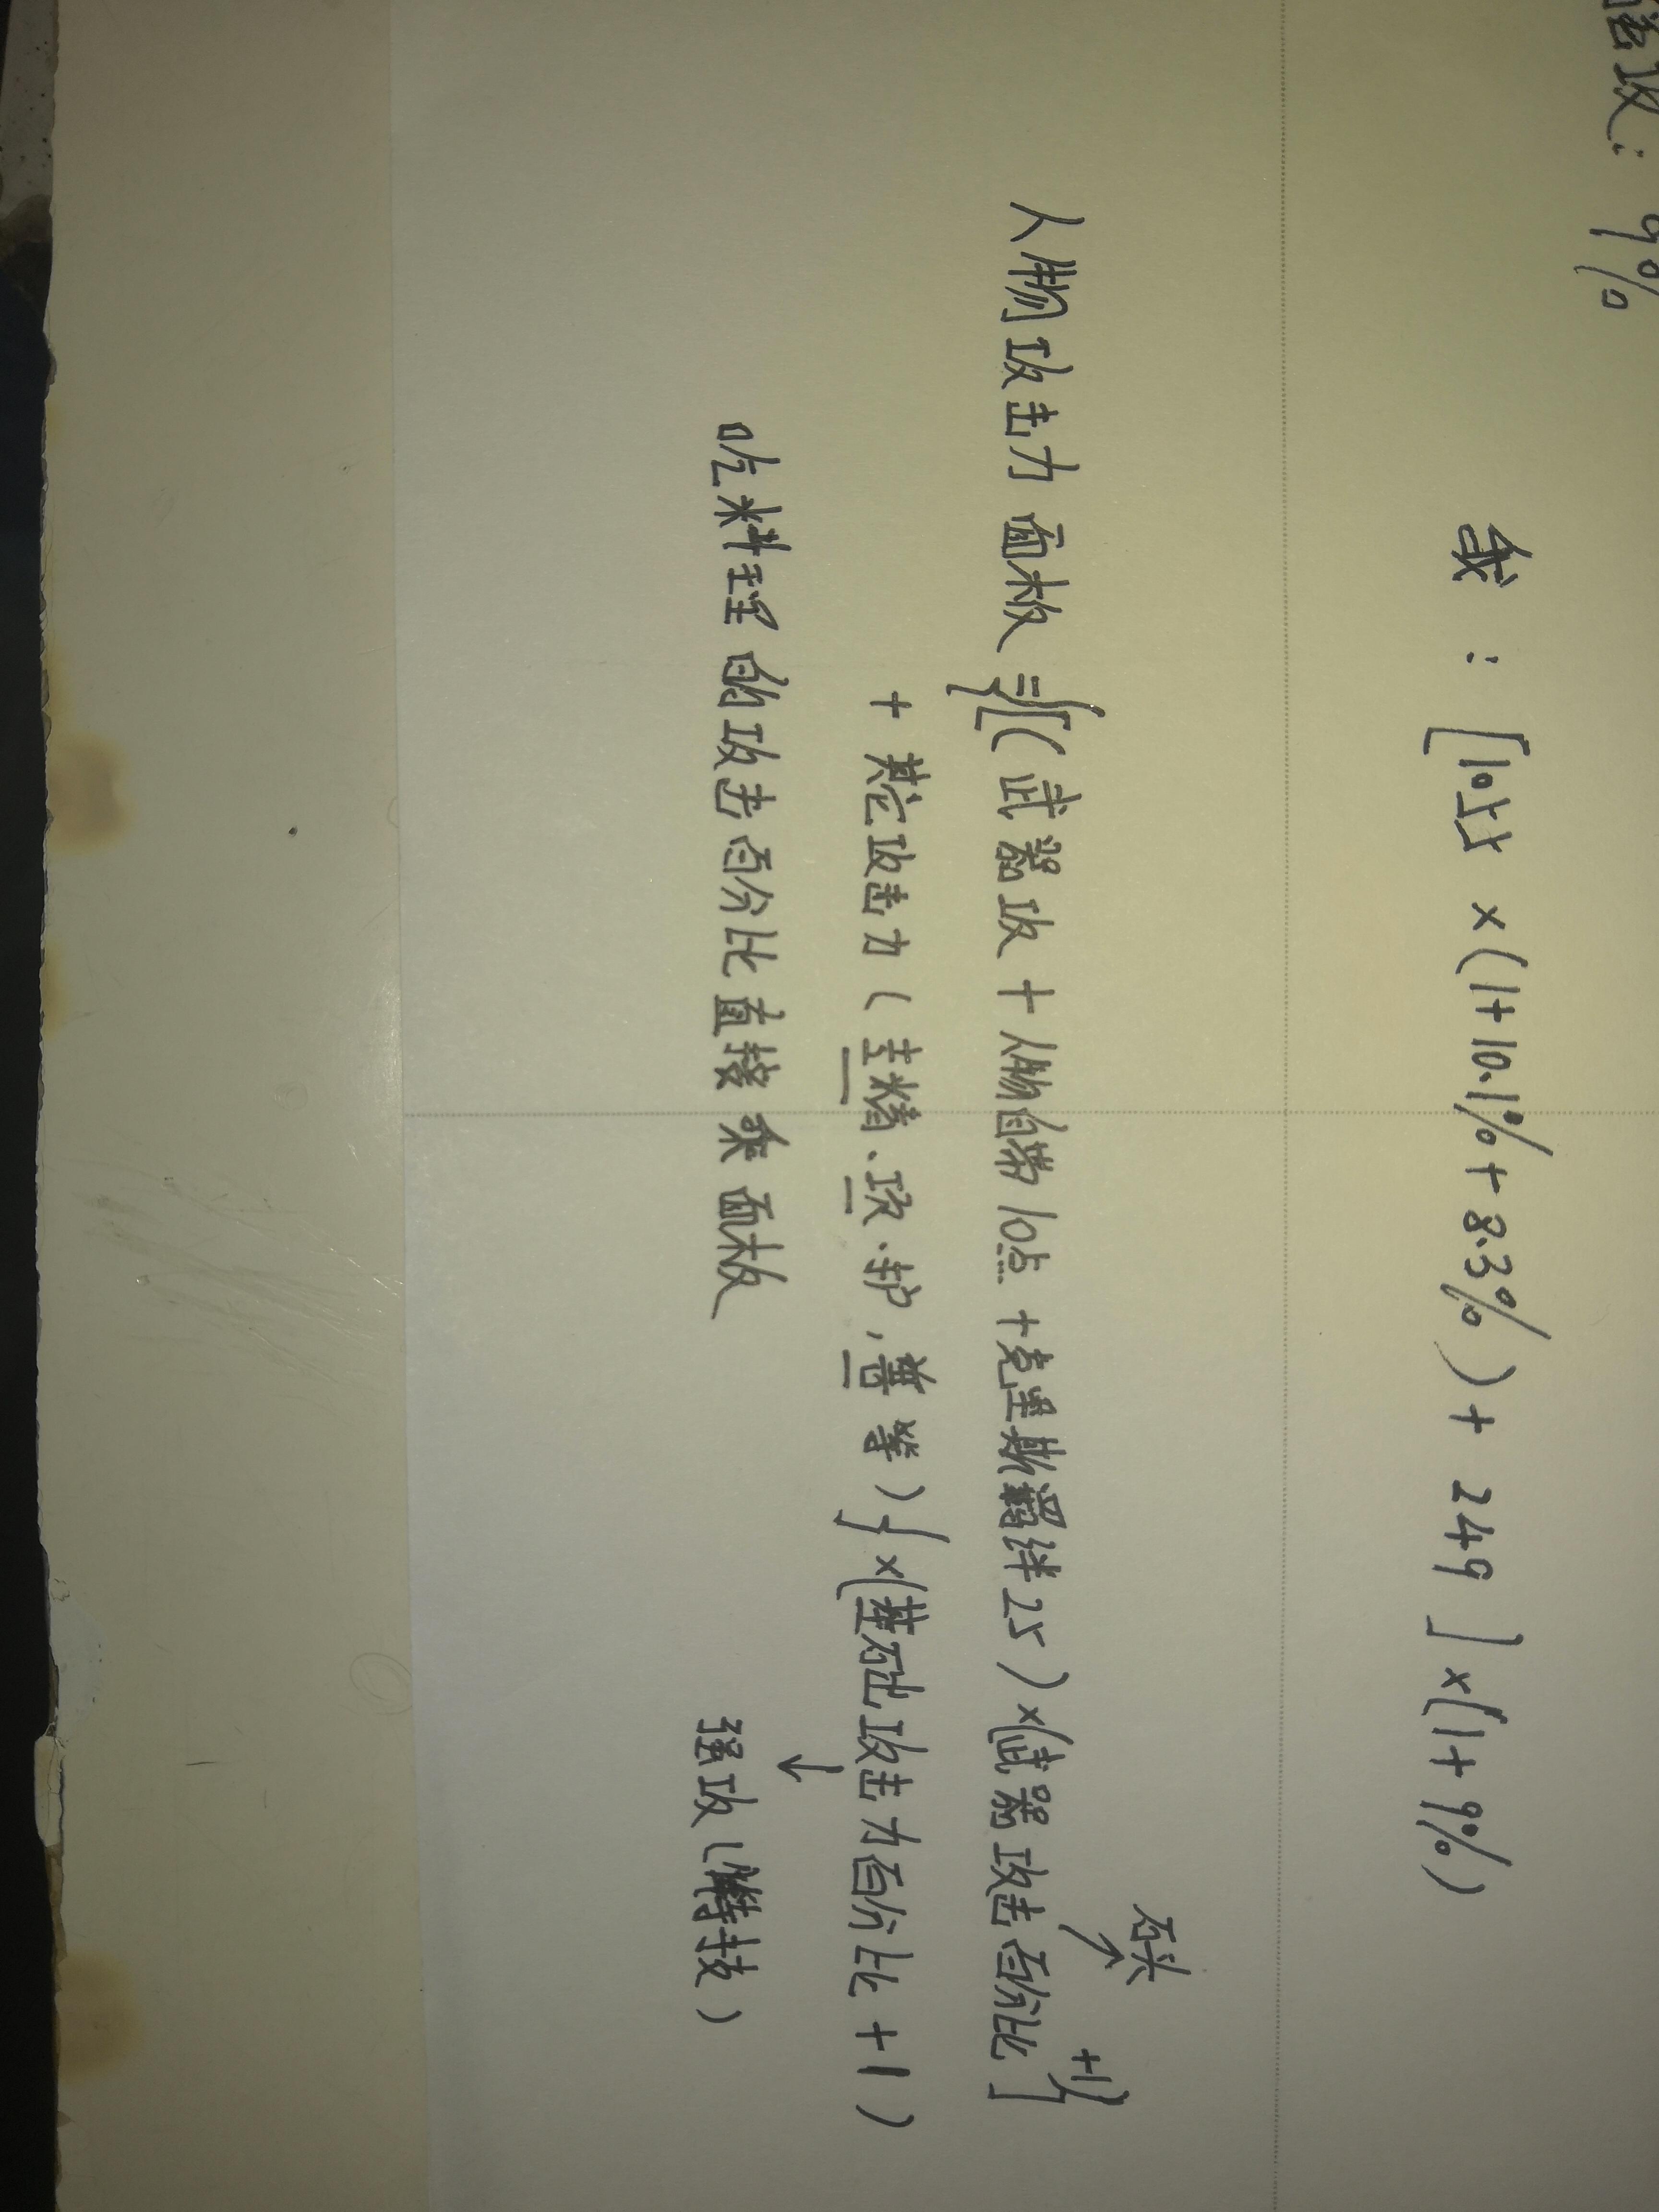 强攻：9%
我：[1055×(1+10.1%+8.3%)+249]×(1+9%)
石头
+1)
人物攻击力面板={[(武器攻+人物自带10点+克里斯羁绊25)×(武器攻击百分比]
+其它攻击力(主精、项、护，普等)}×(基础攻击力百分比+1)
吃料理的攻击百分比直接乘面板
强攻(特技)